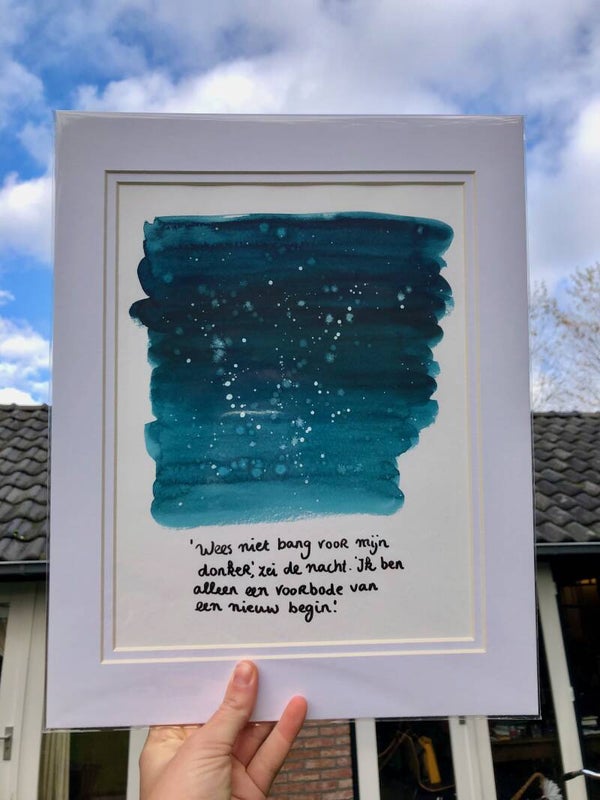 'Wees niet bang voor mijn
donker,' zei de nacht. 'Ik ben
alleen een voorbode van
een nieuw begin.'